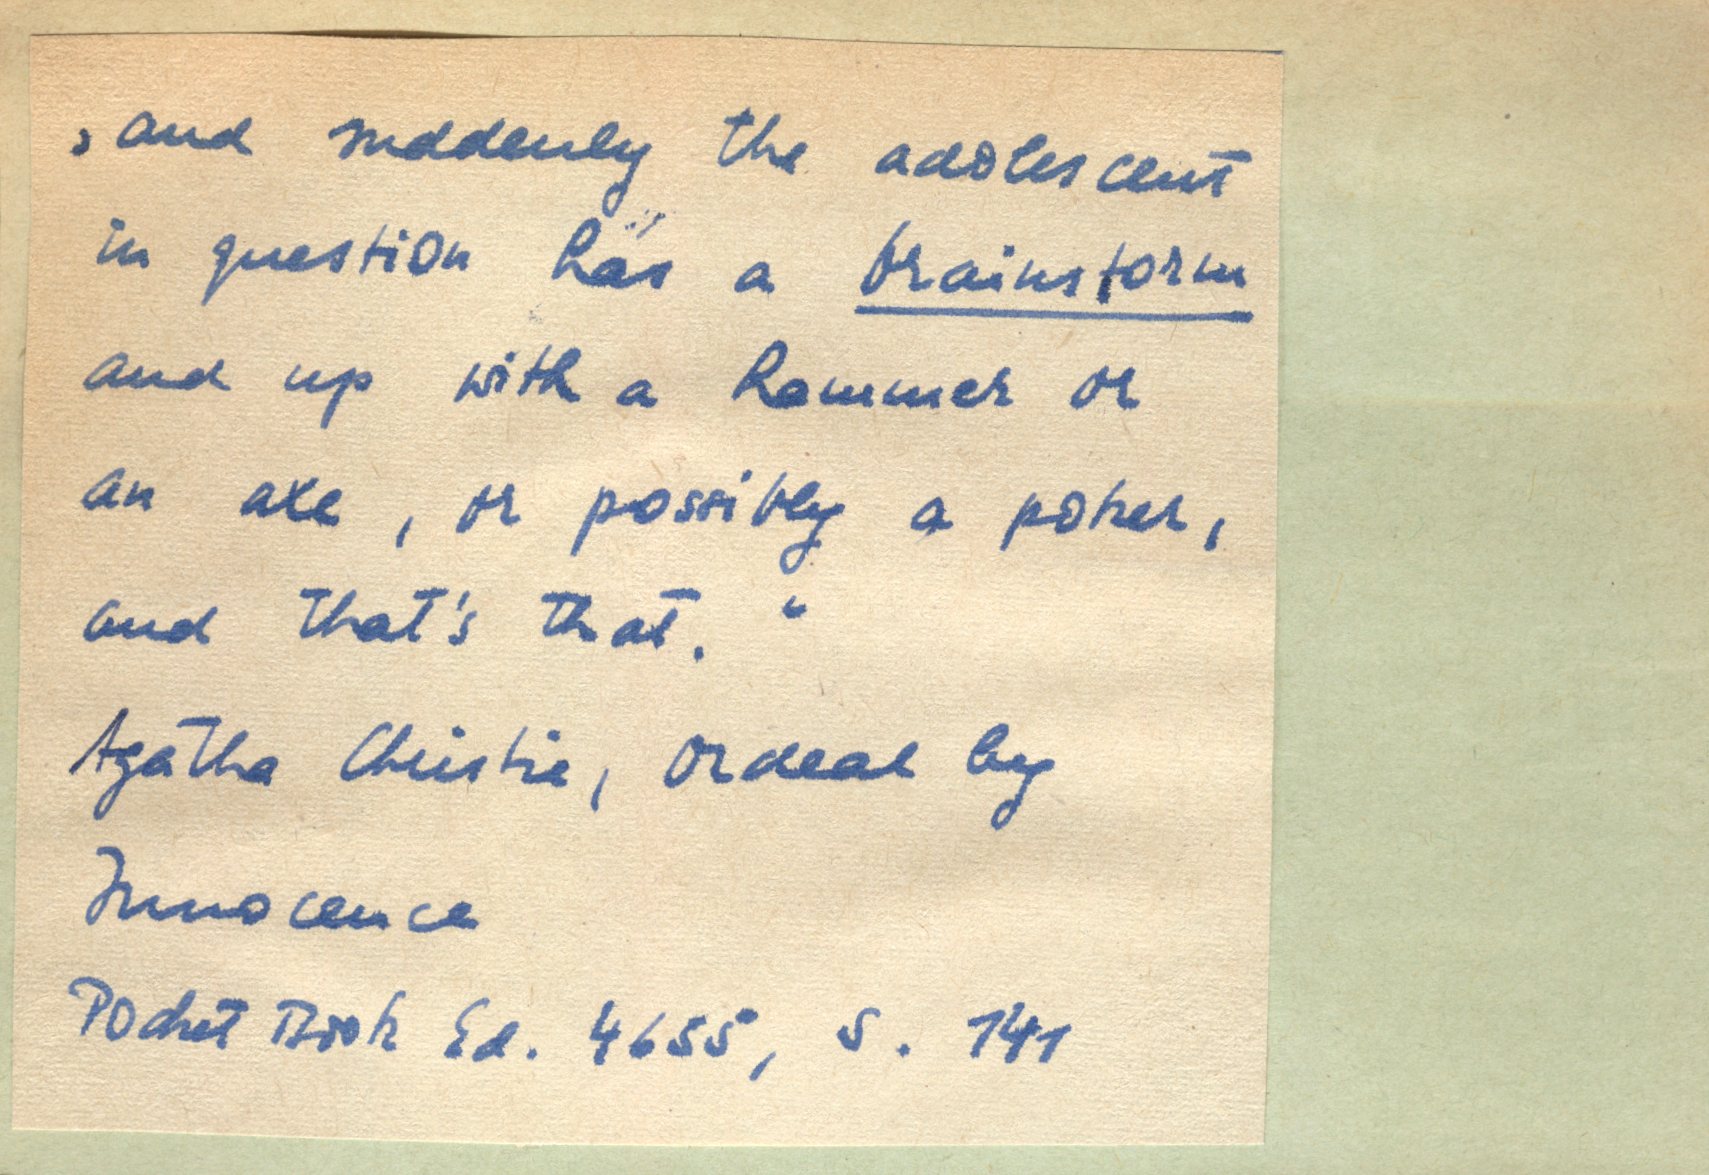 „and suddenly the adolescent
in question has a brainstorm
and up with a hammer or
an axe, or possibly a poker,
and that's that.“
Agatha Christie, Ordeal by
Innocence
Pocket Book Ed. 4655, S. 141